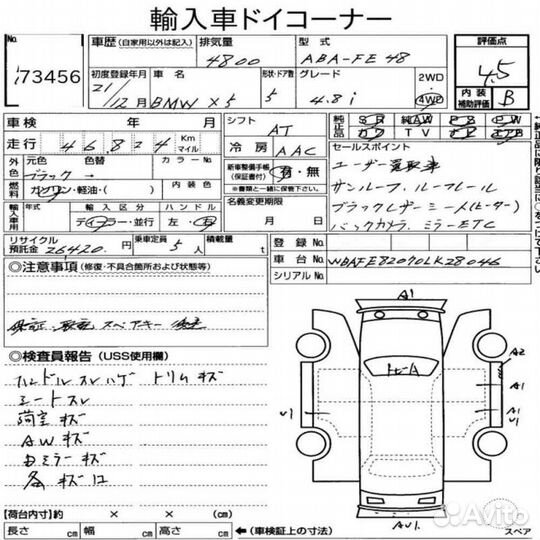 輸入車ドイコーナー
No.
73456
車歴 (自家用以外は記入) 排気量 型式
4800 ABA-FE48
評価点
4.5
内装補助評価 B
初度登録年月 車名 形状・ドア数 グレード 2WD
21/12月 BMW X5 5 4.8i 4WD
車検 年 月
シフト AT
純正品 SR AW PS PW
カワ TV ナビ エアB
走行 46824 Km マイル
冷房 AAC
外色 元色 色替 カラーNo.
ブラック →
新車整備手帳(保証書付) 有・無
セールスポイント
ユーザー買取車
サンルーフ、ルーフレール
ブラックレザーシート(ヒーター)
バックカメラ、ミラーETC
燃料 ガソリン・軽油・( ) 内装色
名義変更期限
月 日
輸入車用 年式 輸入区分 ハンドル
ディーラー・並行 左・右
リサイクル預託金 26420 円 乗車定員 5 人 積載量 t
登録No.
車台No. WBAFE82070LK28046
シリアルNo.
◎注意事項 (修復・不具合箇所および状態等)
スペアキー
◎検査員報告 (USS使用欄)
ハンドルスレハゲ トリムキズ
シートスレ
荷室キズ
A.Wキズ
Dミラーキズ
各キズ
A1
A2
A1
A1
V1
U1
【荷台内寸】 × × (cm)
長さ cm 幅 cm 高さ cm
← (車検証上の寸法)
スペア
Avito